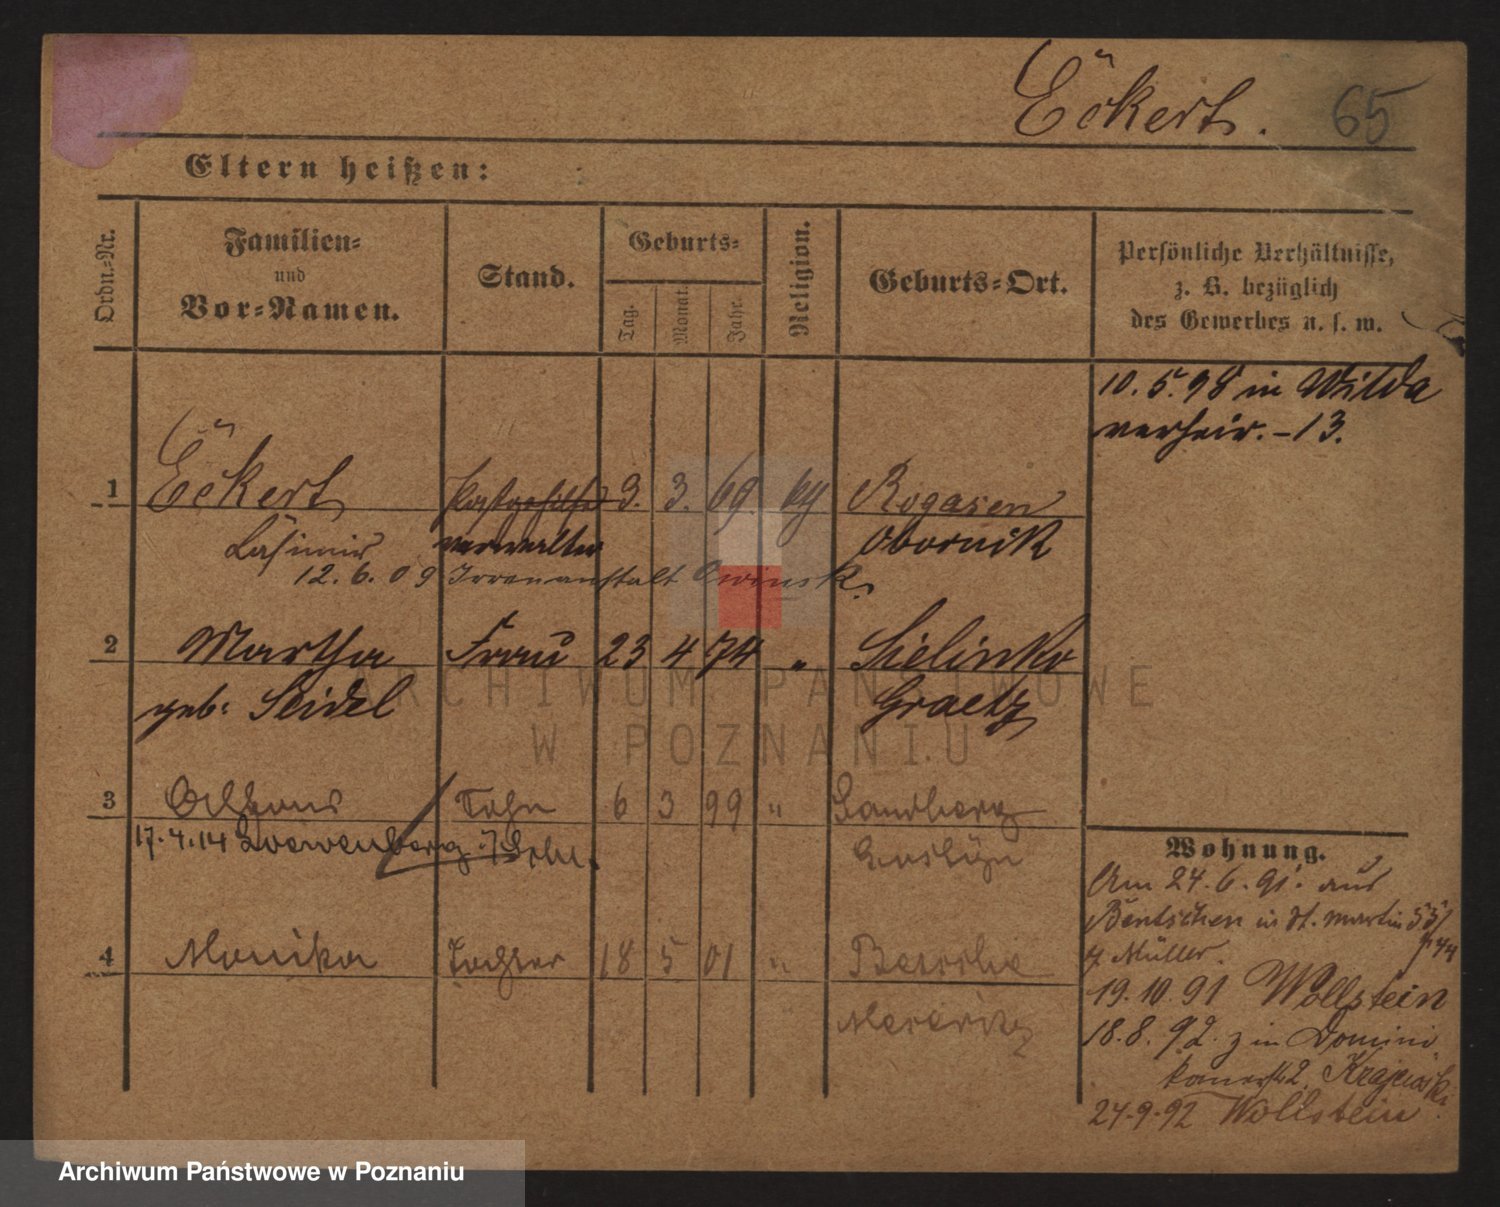 Eckert. 65
Eltern heißen:
Ordn.-Nr.
Familien-
und
Vor-Namen.
Stand.
Geburts-
Tag.
Monat.
Jahr.
Religion.
Geburts-Ort.
Persönliche Verhältnisse,
z. B. bezüglich
des Gewerbes u. s. w.
10. 5. 98 in Wilda
verheir. - 13.
1 Eckert Postgehilfe 3. 3. 69. Rogasen
Casimir verwalter Obornik
12. 6. 09 Irrenanstalt Owinsk.
2 Martha Frau 23 4 74 " Sielinko
geb. Seidel Graetz
3 Alfons Sohn 6 3 99 " Landsberg
17. 4. 14 Loewenberg i/Schl.
4 Monika Tochter 18 5 01 " Betsche
Meseritz
Wohnung.
Am 24. 6. 91. aus
Bentschen in St. Martin 53/
b. Müller.
19. 10. 91 Wollstein
18. 8. 92. z in Domini
kanerstr. 2. Krajewski.
24. 9. 92 Wollstein
ARCHIWUM PAŃSTWOWE
W POZNANIU
Archiwum Państwowe w Poznaniu